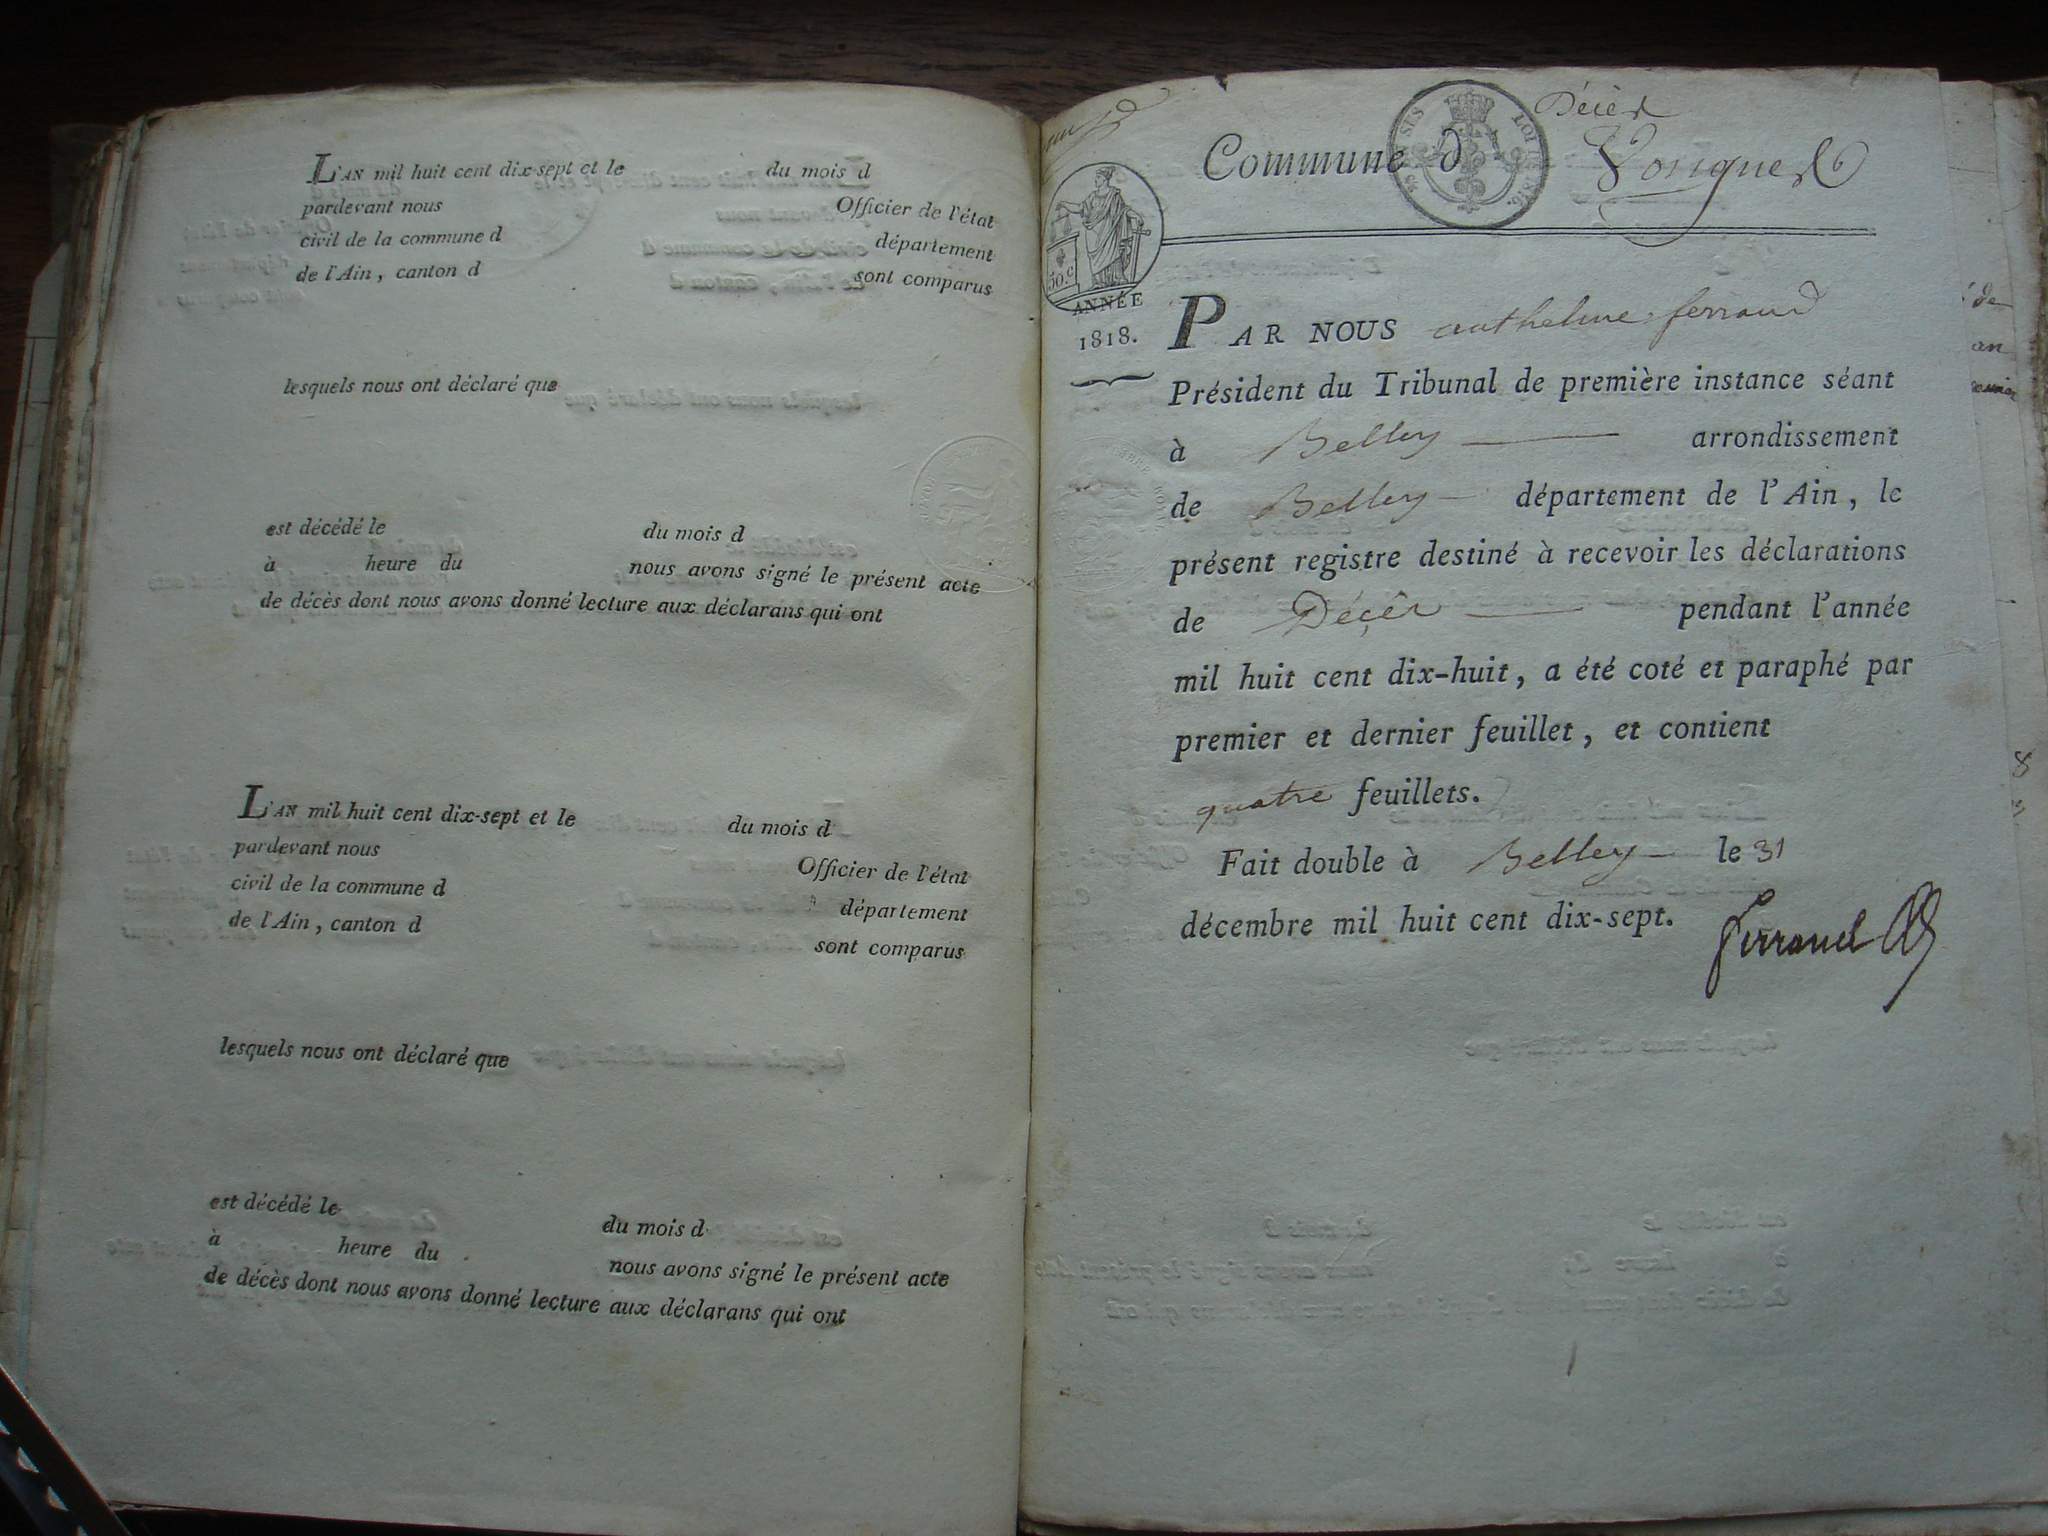 L'AN mil huit cent dix-sept et le du mois d
pardevant nous Officier de l'état
civil de la commune d département
de l'Ain, canton d sont comparus
lesquels nous ont déclaré que
est décédé le du mois d
à heure du nous avons signé le présent acte
de décès dont nous avons donné lecture aux déclarans qui ont
L'AN mil huit cent dix-sept et le du mois d
pardevant nous Officier de l'état
civil de la commune d département
de l'Ain, canton d sont comparus
lesquels nous ont déclaré que
est décédé le du mois d
à heure du nous avons signé le présent acte
de décès dont nous avons donné lecture aux déclarans qui ont
Décès
Commune d Vongnes
50.c
ANNÉE
1818.
PAR NOUS anthelme ferrand
Président du Tribunal de première instance séant
à Belley arrondissement
de Belley département de l'Ain, le
présent registre destiné à recevoir les déclarations
de Décès pendant l'année
mil huit cent dix-huit, a été coté et paraphé par
premier et dernier feuillet, et contient
quatre feuillets.
Fait double à Belley le 31
décembre mil huit cent dix-sept.
Ferrand